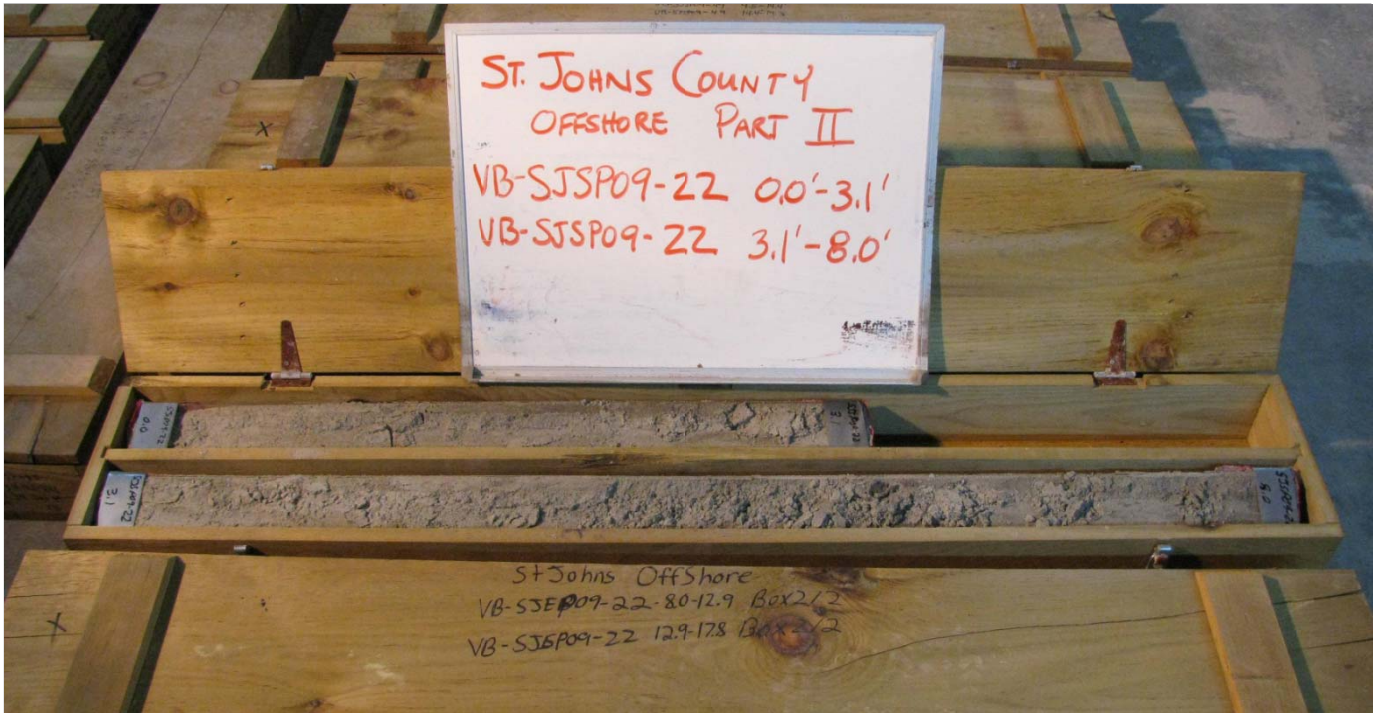 ST. JOHNS COUNTY
OFFSHORE PART II
VB-SJSP09-22 0.0'-3.1'
VB-SJSP09-22 3.1'-8.0'
0.0
3.1
3.1
8.0
St Johns OffShore
VB-SJEP09-22-8.0-12.9 Box 2/2
VB-SJSP09-22 12.9-17.8 Box 2/2
X
X